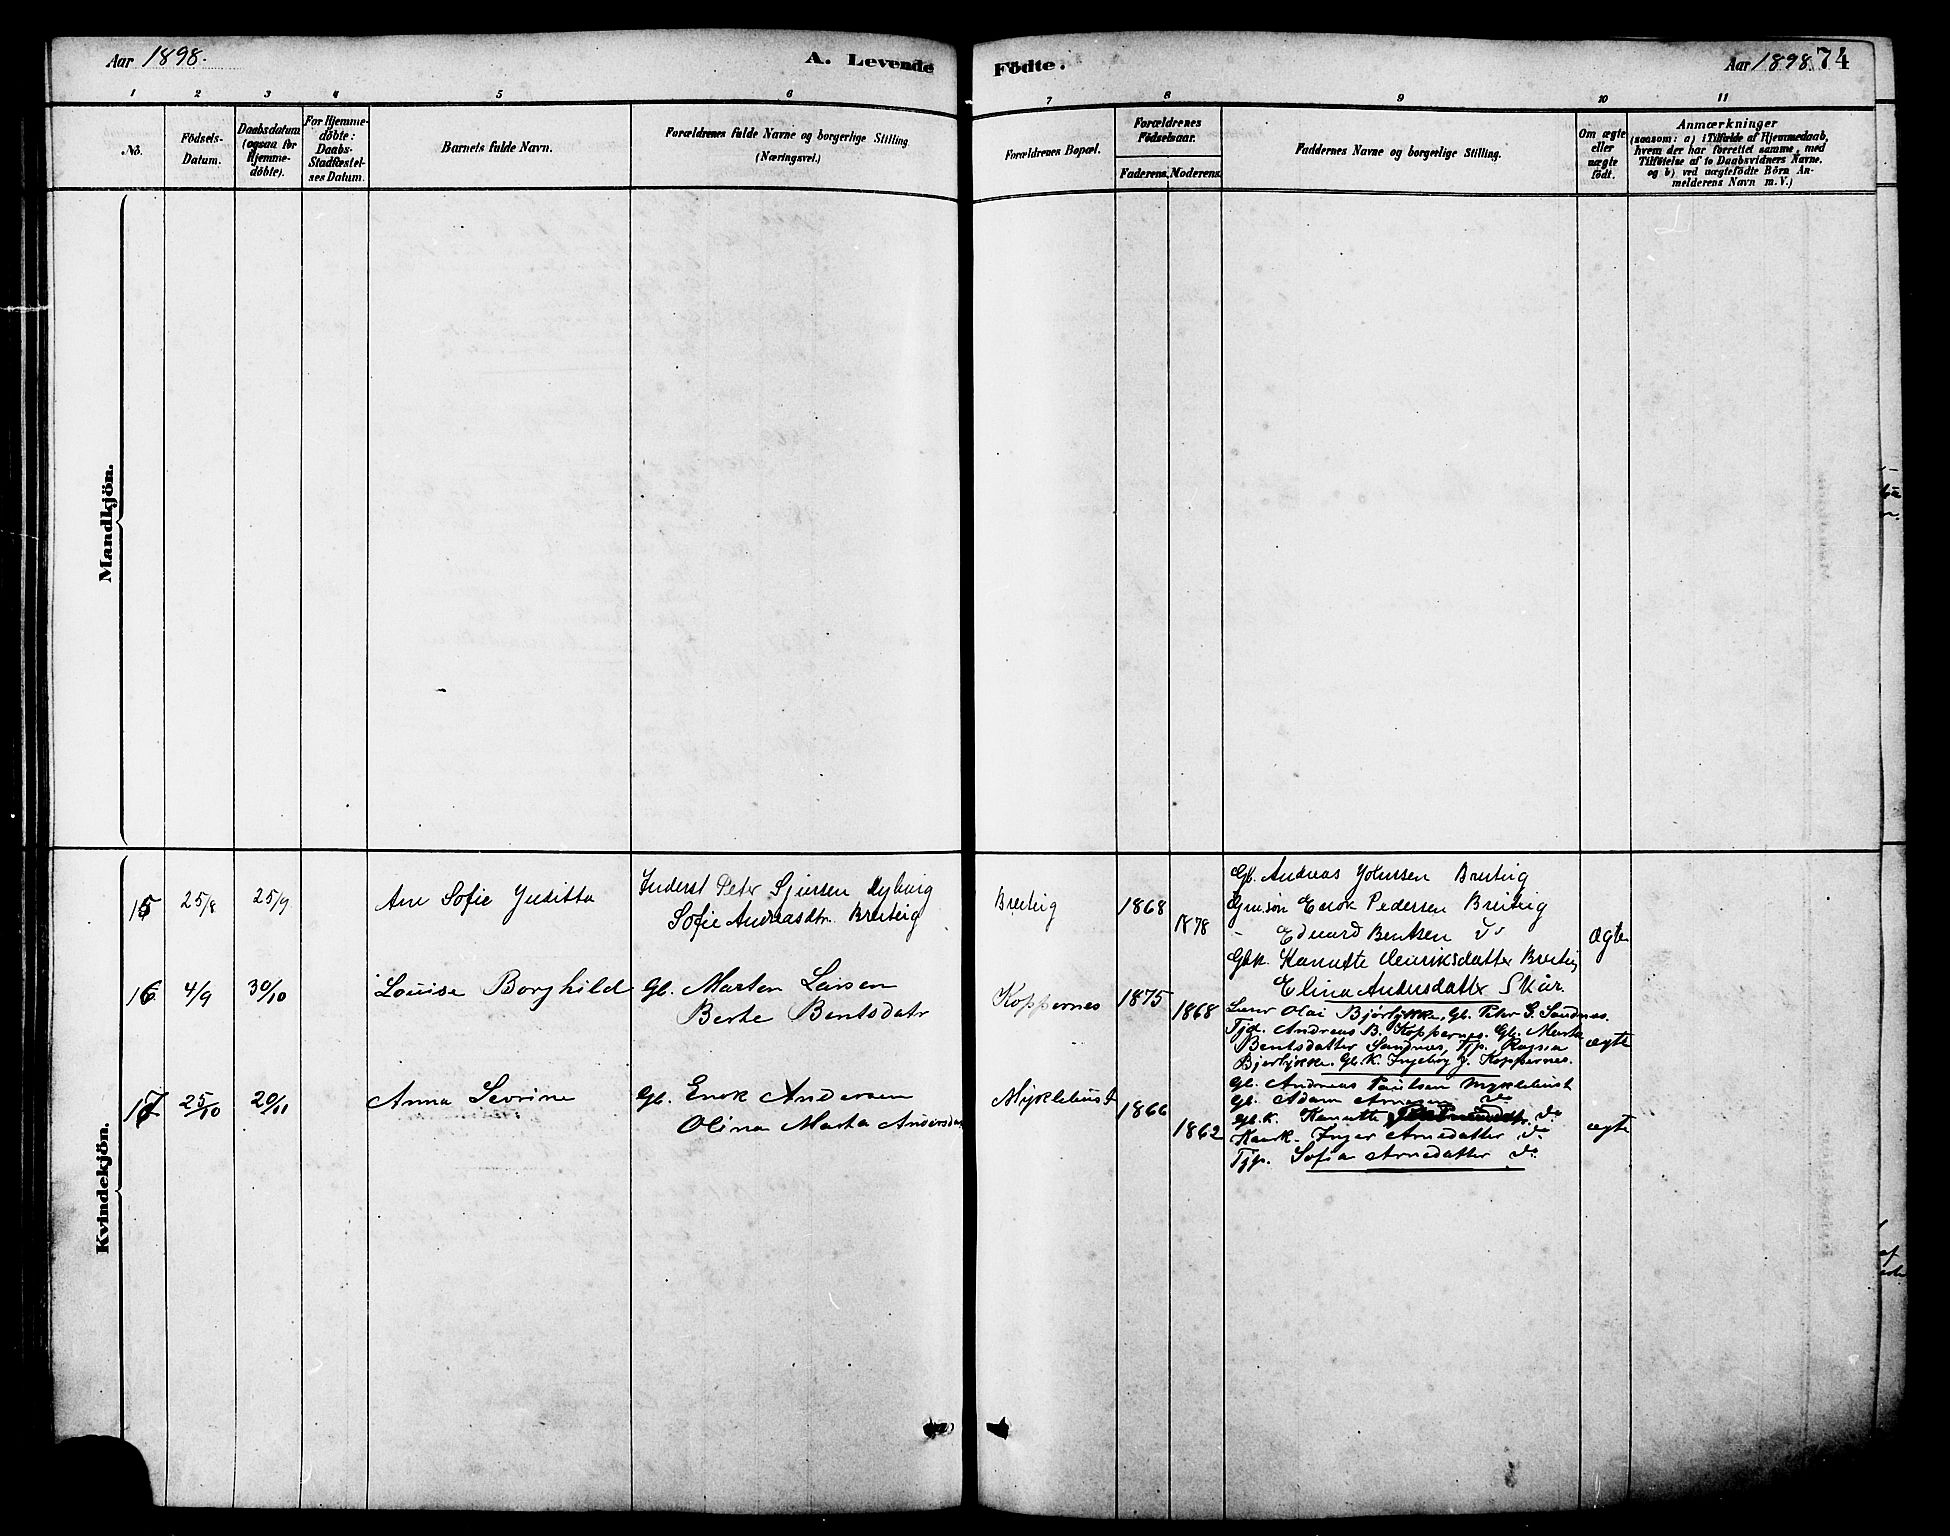 Aar 1898.
A. Levende Födte.
Aar 1898 74
1 2 3 4 5 6 7 8 9 10 11
No.
Födsels-Datum.
Daabsdatum (ogsaa for Hjemme-döbte).
For Hjemme-döbte: Daabs-Stadfæstel-ses Datum.
Barnets fulde Navn.
Forældrenes fulde Navne og borgerlige Stilling (Næringsvei.)
Forældrenes Bopæl.
Forældrenes Födselsaar.
Faderens. Moderens.
Faddernes Navne og borgerlige Stilling.
Om ægte eller uægte födt.
Anmærkninger
(saasom: a) i Tilfælde af Hjemmedaab,
hvem der har forrettet samme, med
Tilföielse af to Daabsvidners Navne.
og b) ved uægtefödte Börn An-
melderens Navn m. V.)
Mandkjön.
Kvindekjön.
15 25/8 25/9 Ane Sofie Juditta
Inderst Peter Sjursen
Sofie Andreasdtr. Breiteig
Breiteig 1868 1878
Gb. Andreas Johnssen Breiteig
Enok Pedersen Breiteig
- Edvard Bentsen do
Gbk. Hanutte Henriksdatter Breiteig
Elina Andersdatter Skår
ægte
16 4/9 30/10 Louise Borghild
Gb. Marten Larsen
Berte Bentsdatr
Koppernes 1875 1868
Olai Bjørlykke, Gb. Peter G. Sandnes.
Tjd. Andreas B. Koppernes. Gb. Marta
Bentsdatter Sandnes, Tjp. Ragna
Bjørlykke. Gb. K. Ingebog J. Koppernes.
ægte
17 25/10 20/11 Anna Sevrine
Gb. Enok Andersen
Olina Marta Andersdatr
Myklebust 1866 1862
Gb. Andreas Paulsen Myklebust
Gb. Adam Arnesen do
Gb. K. Hanutte do
Inger Arnedatter do
Tjp. Sofia Arnedatter do
ægte